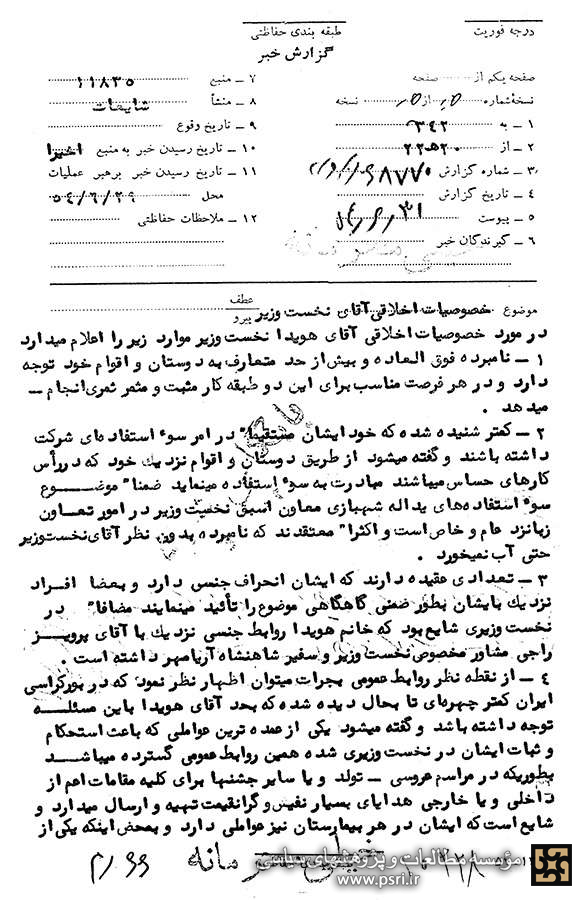 درجه فوریت
طبقه بندی حفاظتی
گزارش خبر
صفحه یکم از صفحه
نسخهٔ شماره از نسخه
۱ ـ به ۳۴۲
۲ ـ از ۲۲ﻫ۲۰
۳ـ شماره گزارش
۴ ـ تاریخ گزارش
۵ ـ پیوست
۶ ـ گیرندگان خبر
۷ ـ منبع ۱۱۸۳۵
۸ ـ منشأ شایعات
۹ ـ تاریخ وقوع
۱۰ ـ تاریخ رسیدن خبر به منبع اخیرا
۱۱ ـ تاریخ رسیدن خبر برهبر عملیات
محل ۵۴/۶/۲۹
۱۲ ـ ملاحظات حفاظتی
موضوع خصوصیات اخلاقی آقای نخست وزیر
عطف
پیرو
در مورد خصوصیات اخلاقی آقای هویدا نخست وزیر موارد زیر را اعلام میدارد
۱ ـ نامبرده فوق العاده و بیش از حد متعارف به دوستان و اقوام خود توجه
دارد و در هر فرصت مناسب برای این دو طبقه کار مثبت و مثمر ثمری انجام ـ
میدهد .
۲ ـ کمتر شنیده شده که خود ایشان مستقیما" در امر سوء استفاده های شرکت
داشته باشند و گفته میشود از طریق دوستان و اقوام نزدیک خود که در رأس
کارهای حساس میباشند مبادرت به سوء استفاده مینماید ضمنا" موضوع
سوء استفاده های یداله شهبازی معاون اسبق نخست وزیر در امور تعاون
زبانزد عام و خاص است و اکثرا" معتقدند که نامبرده بدون نظر آقای نخست وزیر
حتی آب نمیخورد .
۳ ـ تعدادی عقیده دارند که ایشان انحراف جنسی دارد و بعضا افراد
نزدیک بایشان بطور ضمنی گاهگاهی موضوع را تأئید مینمایند مضافا" در
نخست وزیری شایع بود که خانم هویدا روابط جنسی نزدیک با آقای پرویز
راجی مشاور مخصوص نخست وزیر و سفیر شاهنشاه آریامهر داشته است .
۴ ـ از نقطه نظر روابط عمومی بجرات میتوان اظهار نظر نمود که در بورکراسی
ایران کمتر چهره ای تا بحال دیده شده که بحد آقای هویدا باین مسئله
توجه داشته باشد و گفته میشود یکی از عمده ترین عواملی که باعث استحکام
و ثبات ایشان در نخست وزیری شده همین روابط عمومی گسترده میباشد
بطوریکه در مراسم عروسی ـ تولد و یا سایر جشنها برای کلیه مقامات اعم از
داخلی و یا خارجی هدایای بسیار نفیس و گرانقیمت تهیه و ارسال میدارد و
شایع است که ایشان در هر بیمارستان نیز عواملی دارد و بمحض اینکه یکی از
خیلی محرمانه
مؤسسه مطالعات و پژوهشهای سیاسی
www.psri.ir